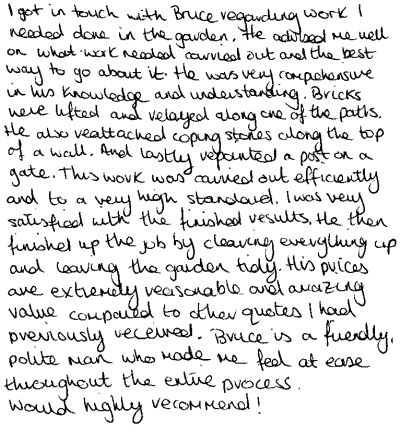 I got in touch with Bruce regarding work I
needed done in the garden. He advised me well
on what work needed carried out and the best
way to go about it. He was very comprehensive
in his knowledge and understanding. Bricks
were lifted and relayed along one of the paths.
He also reattached coping stones along the top
of a wall. And lastly repointed a post on a
gate. This work was carried out efficiently
and to a very high standard. I was very
satisfied with the finished results. He then
finished up the job by clearing everything up
and leaving the garden tidy. His prices
are extremely reasonable and amazing
value compared to other quotes I had
previously received. Bruce is a friendly,
polite man who made me feel at ease
throughout the entire process.
Would highly recommend!